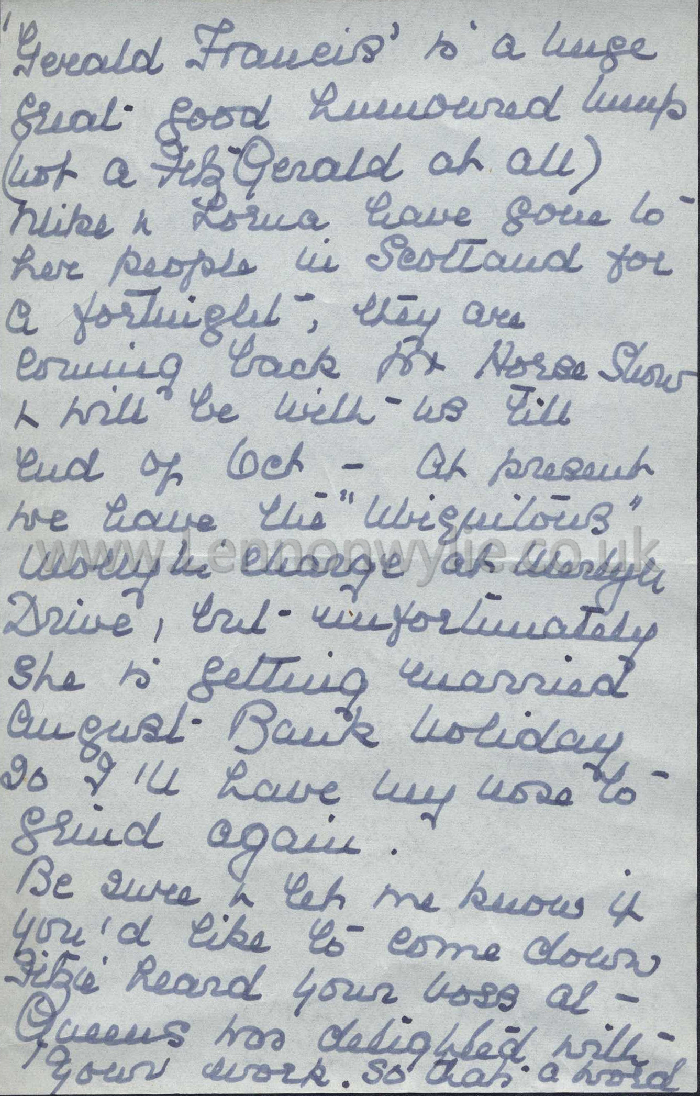 'Gerald Francis' is a huge
great good humoured lump
(not a Fitz Gerald at all)
Mike & Lorna have gone to
her people in Scotland for
a fortnight, they are
coming back for Horse Show
& will be with us till
end of Oct - At present
we have the "Ubiquitous"
Molly in charge at Merlyn
Drive, but unfortunately
she is getting married
August Bank holiday
so I'll have my nose to
grind again.
Be sure & let me know if
you'd like to come down
Fitzie heard your boss at
Queens was delighted with
your work. so that a word
www.Lennonwylie.co.uk